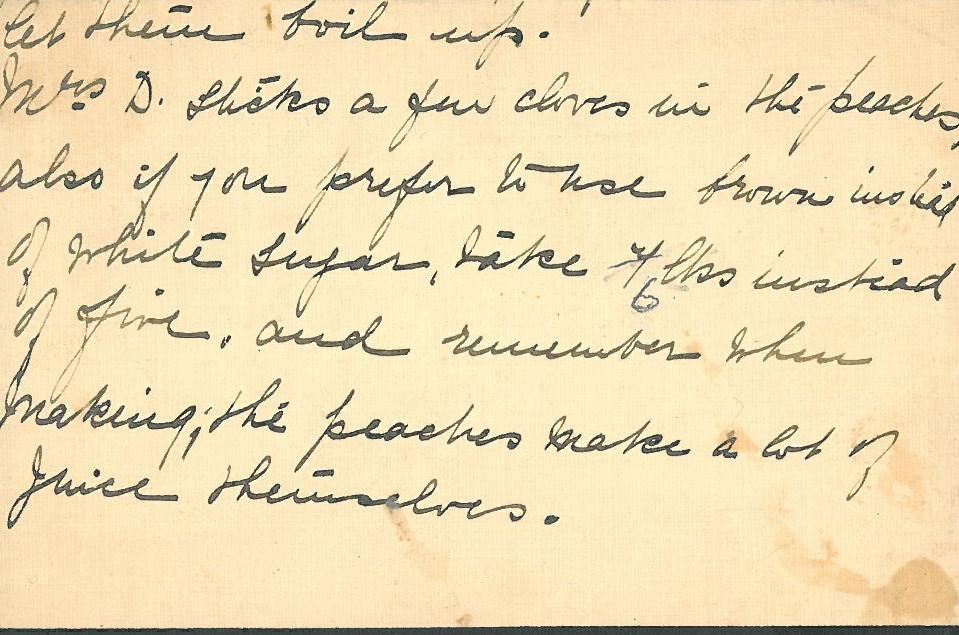 let them boil up.
Mrs D. sticks a few cloves in the peaches,
also if you prefer to use brown instead
of white sugar, take 4 lbs instead
6
of five. and remember when
making, the peaches make a lot of
juice themselves.